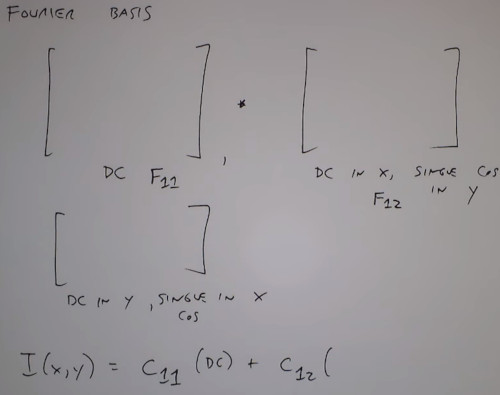 FOURIER BASIS
[ ] , * [ ]
DC F11
DC IN X, SINGLE COS
F12 IN Y
[ ]
DC IN Y, SINGLE IN X
COS
I(x,y) = C11 (DC) + C12 (